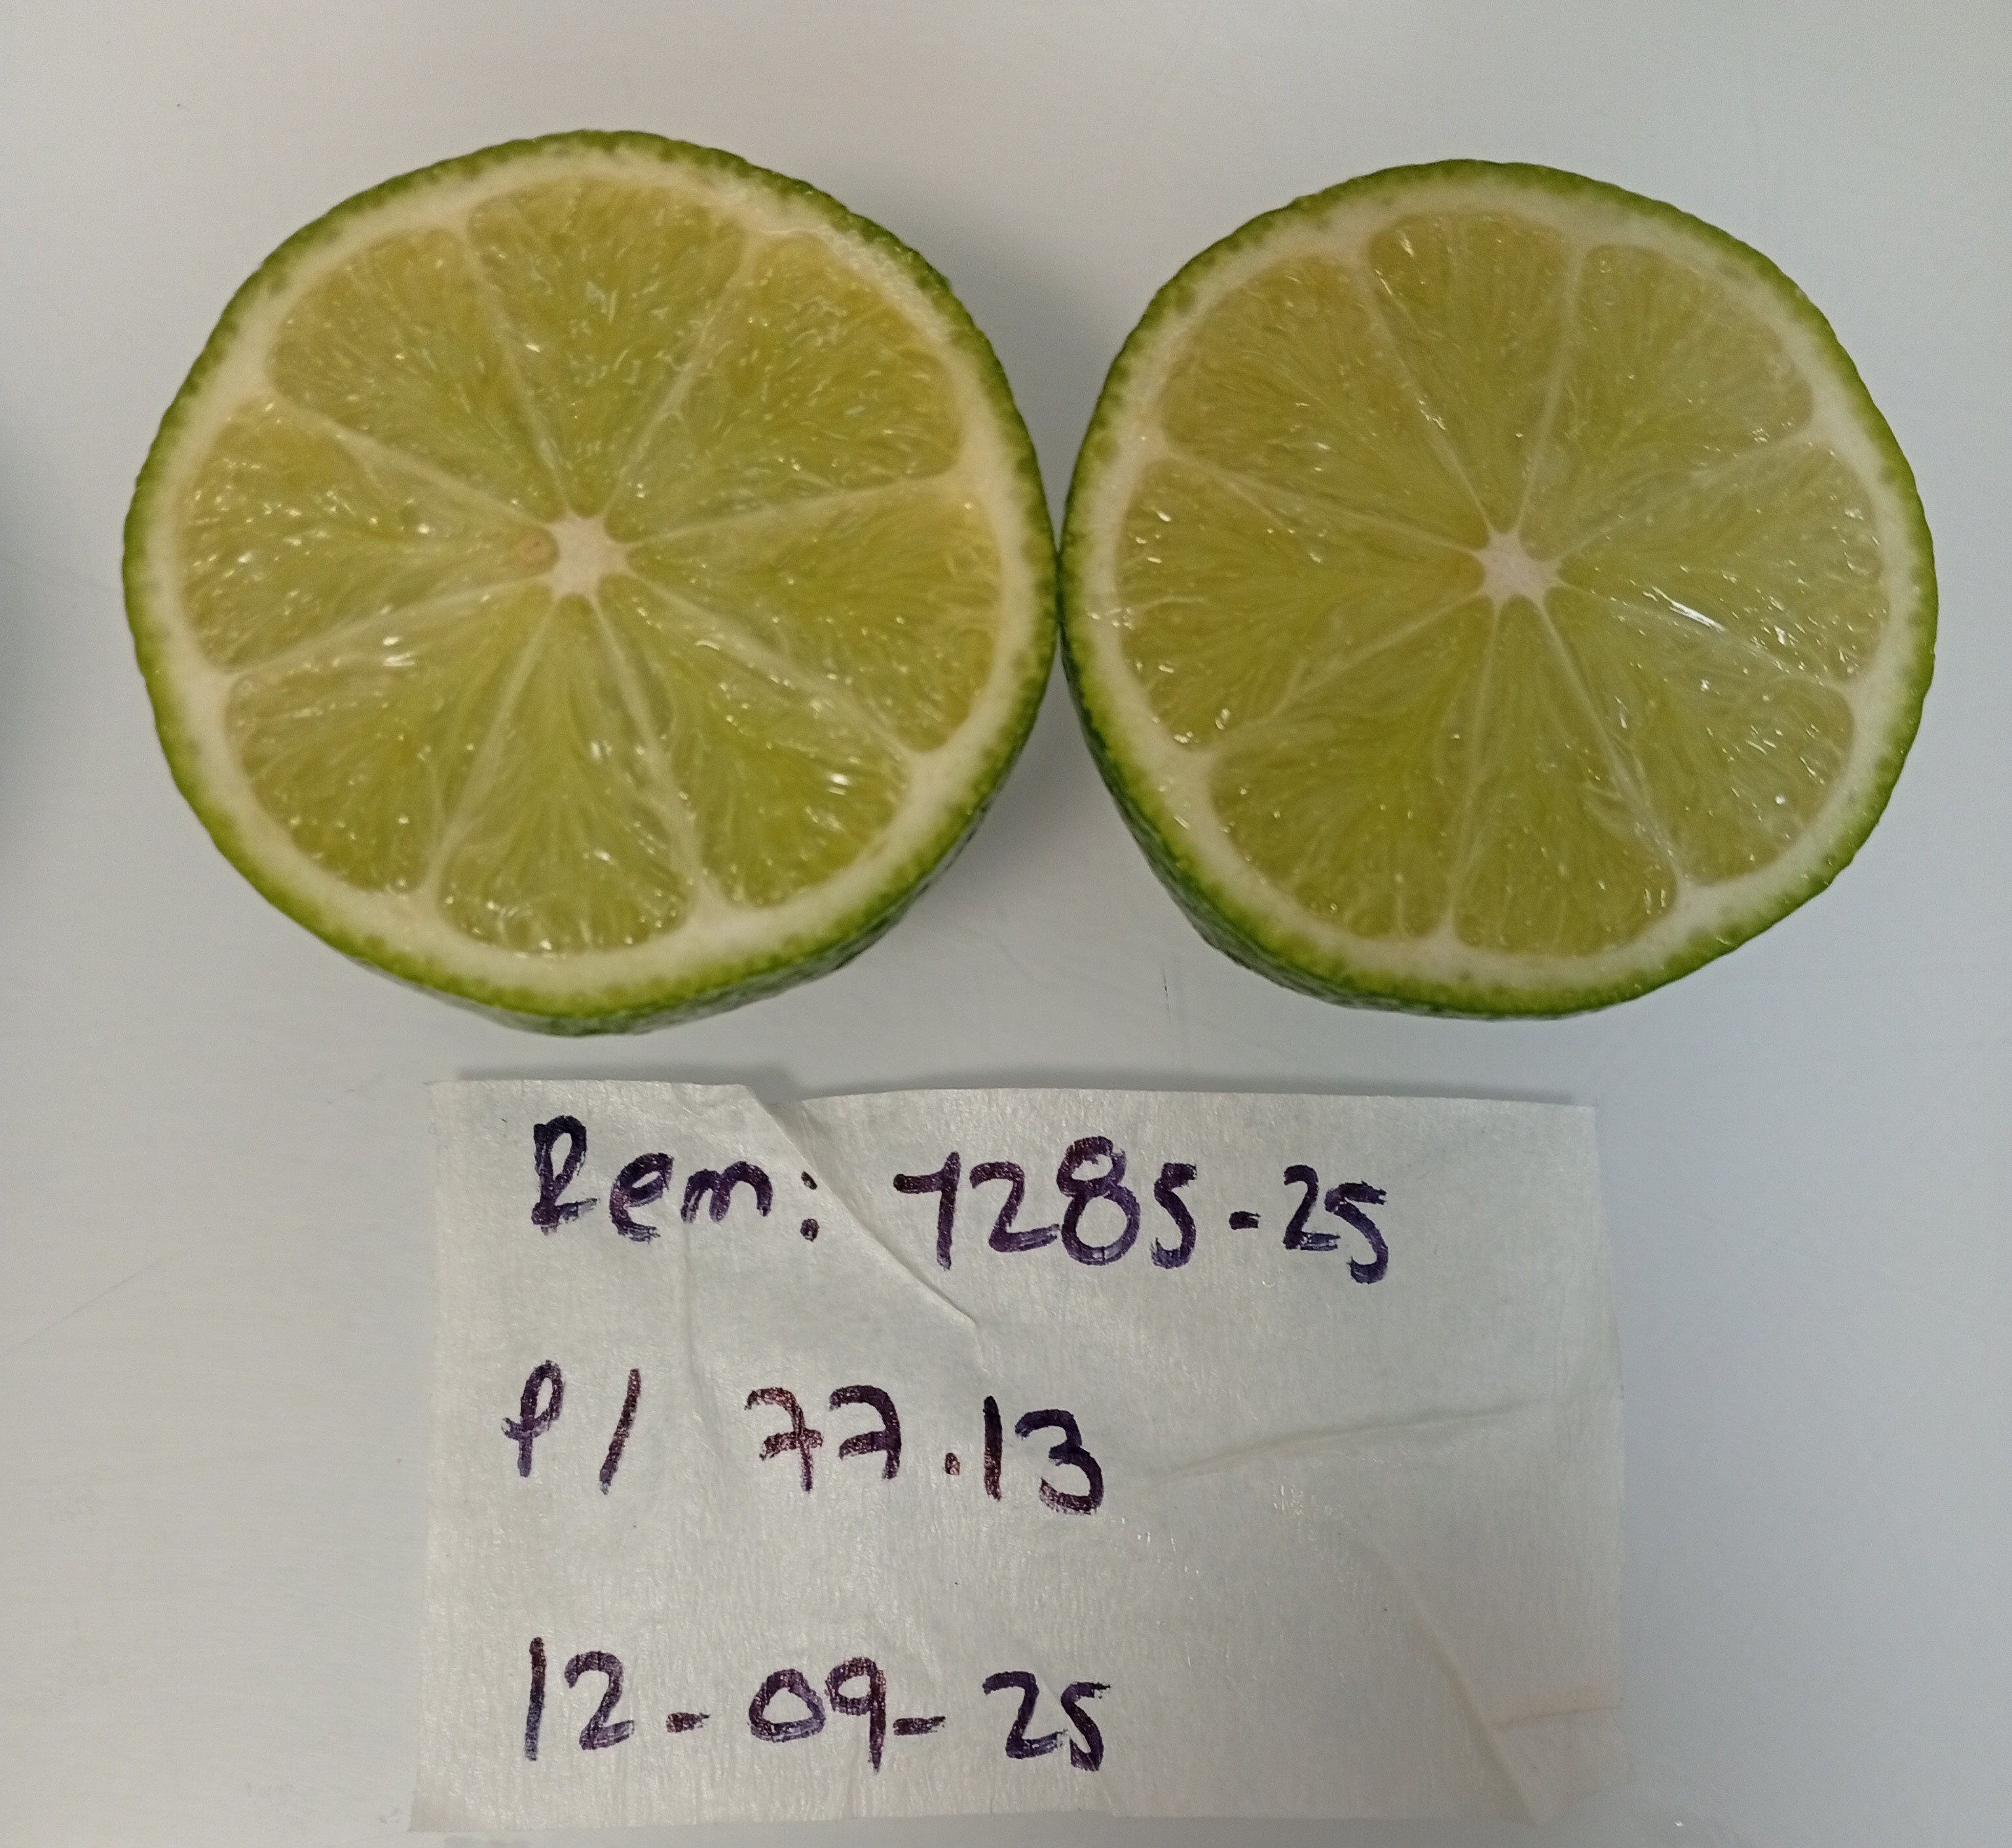 Rem: 1285-25
P/ 77.13
12-09-25